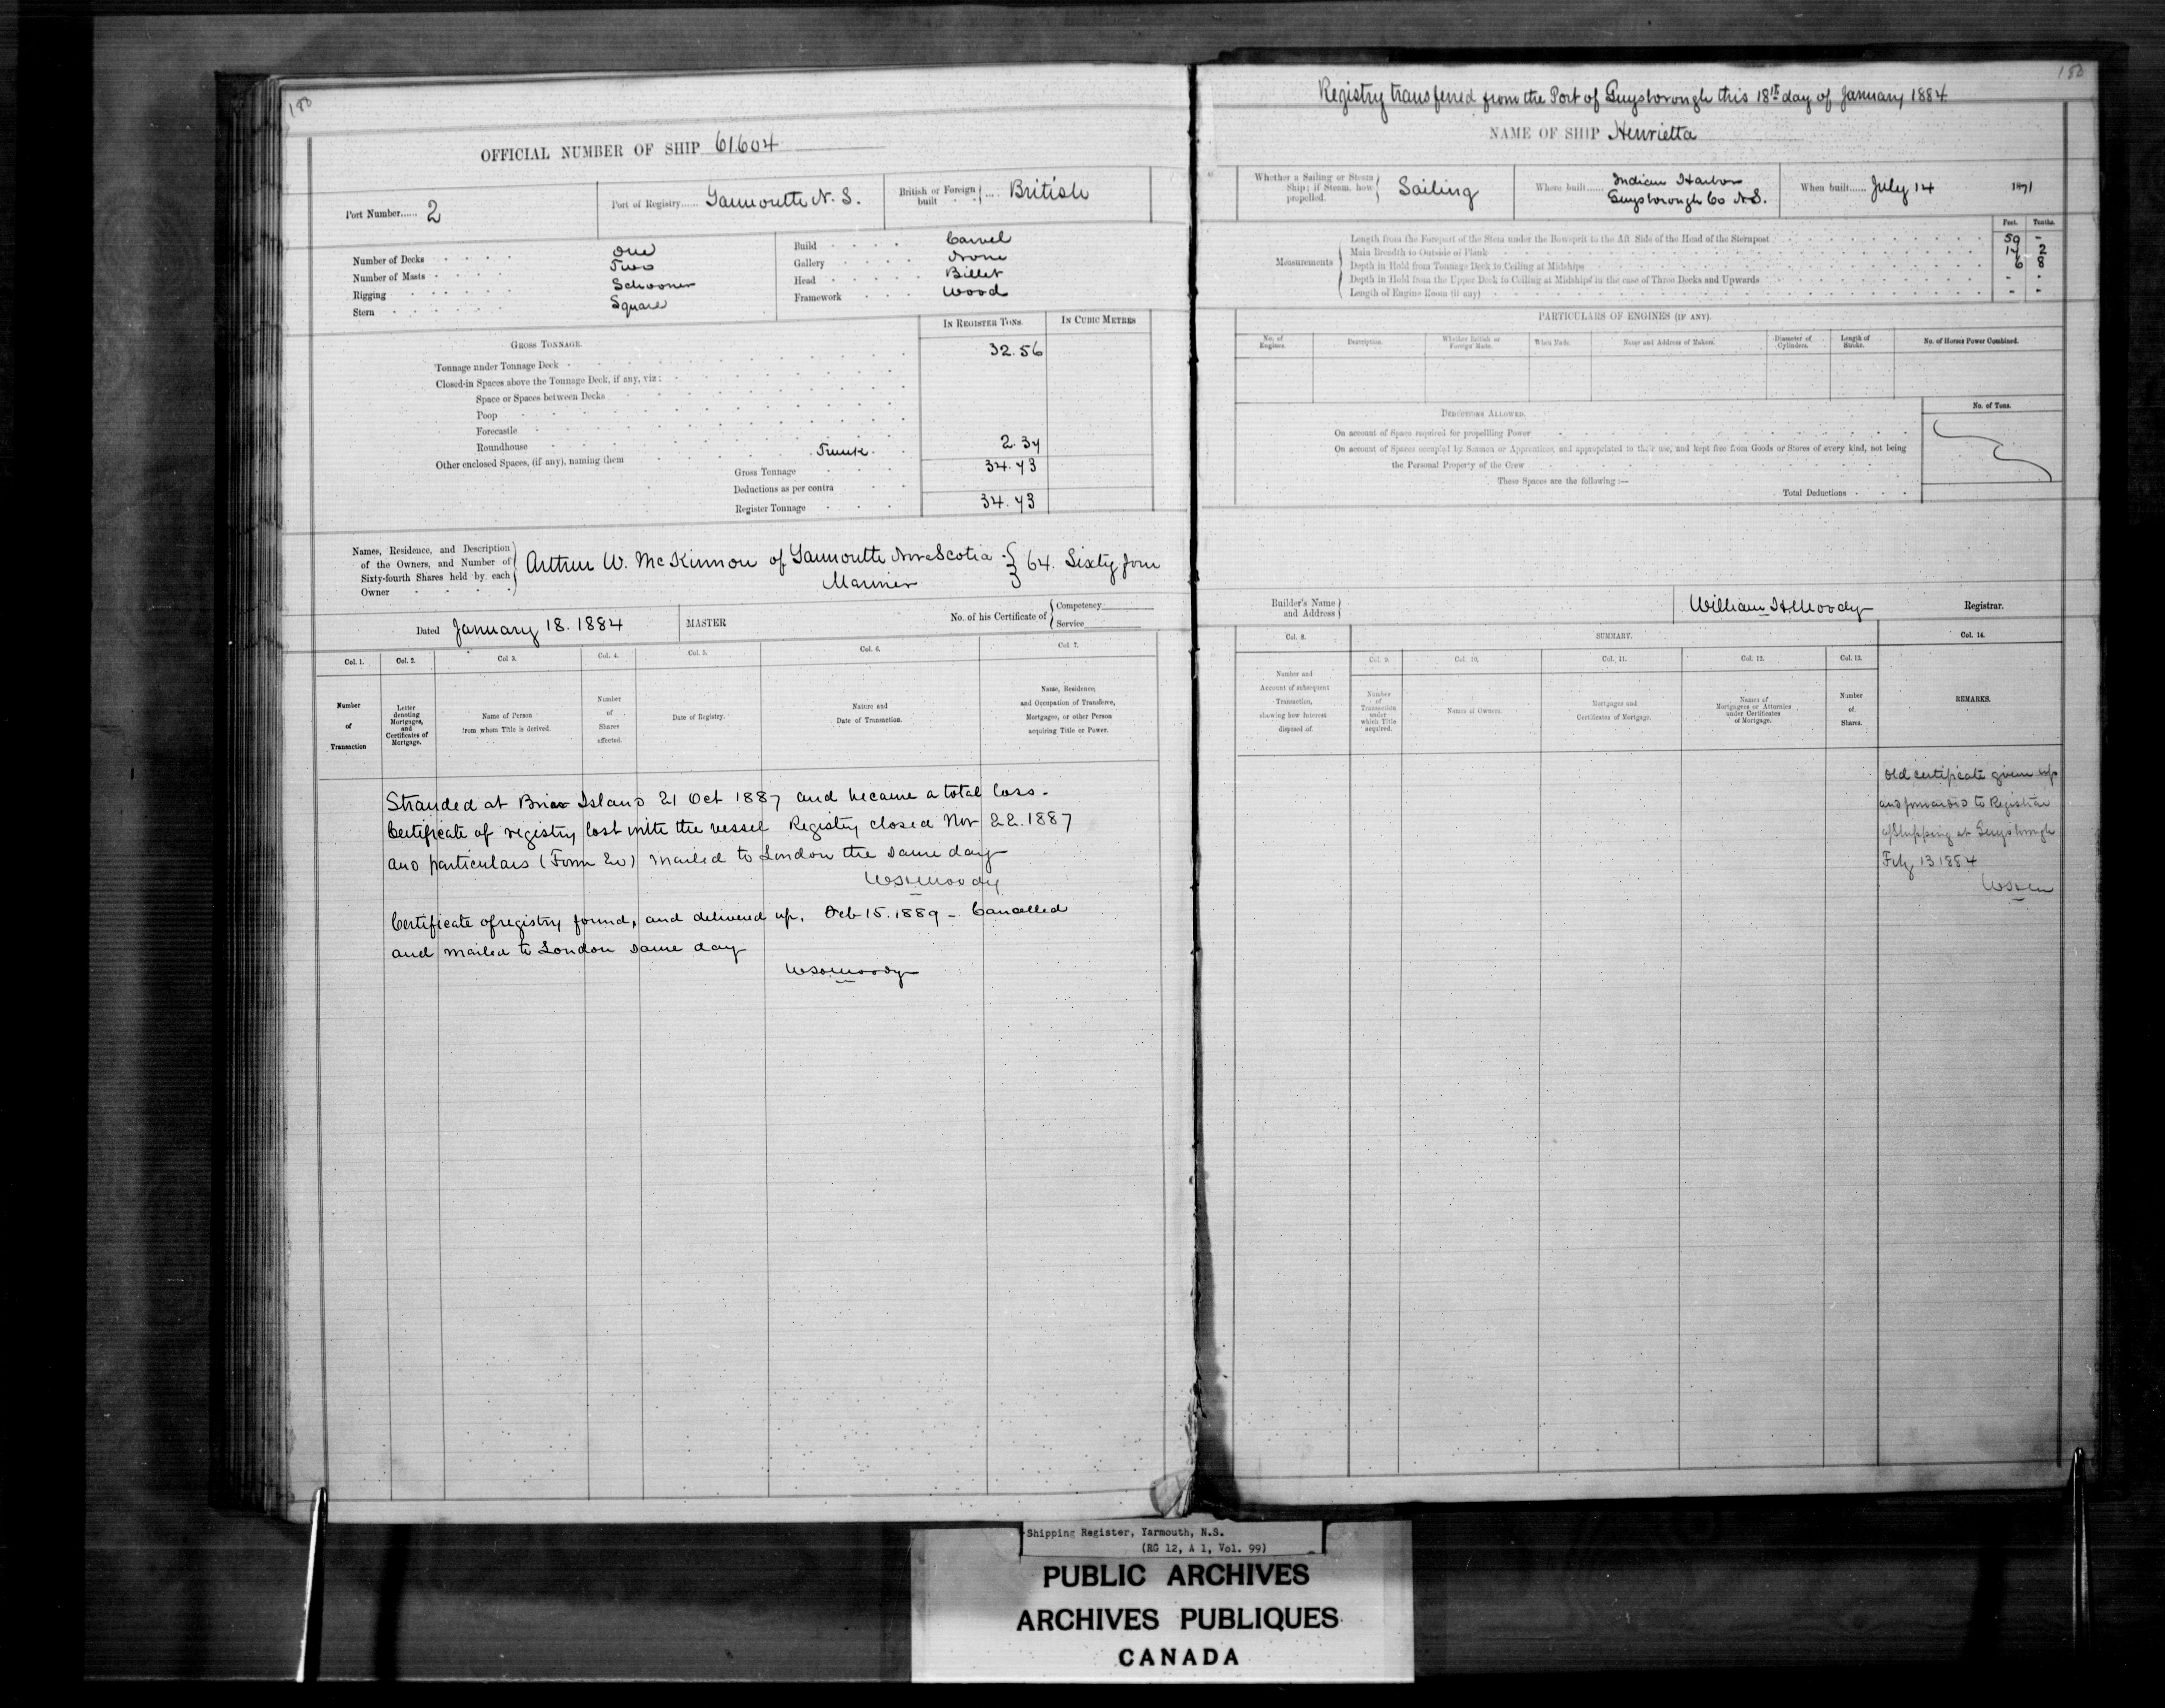 180
OFFICIAL NUMBER OF SHIP 61604
Port Number...... 2
Port of Registry...... Yarmouth N. S.
British or Foreign built ... British
Number of Decks One
Number of Masts Two
Rigging Schooner
Stern Square
Build Carvel
Gallery None
Head Billet
Framework Wood
IN REGISTER TONS.
IN CUBIC METRES
GROSS TONNAGE.
Tonnage under Tonnage Deck 32.56
Closed-in Spaces above the Tonnage Deck, if any, viz:
Space or Spaces between Decks
Poop
Forecastle
Roundhouse
Other enclosed Spaces, (if any), naming them Trunk 2.37
Gross Tonnage 34.93
Deductions as per contra
Register Tonnage 34.93
Names, Residence, and Description of the Owners, and Number of Sixty-fourth Shares held by each Owner
Arthur W. McKinnon of Yarmouth Nova Scotia 64. Sixty four
Mariner
Dated January 18. 1884
MASTER
No. of his Certificate of Competency
Service
Col. 1. Col. 2. Col 3. Col. 4. Col. 5. Col. 6. Col 7.
Number of Transaction
Letter denoting Mortgages, and Certificates of Mortgage.
Name of Person from whom Title is derived.
Number of Shares affected.
Date of Registry.
Nature and Date of Transaction.
Name, Residence, and Occupation of Transferee, Mortgagee, or other Person acquiring Title or Power.
Stranded at Brier Island 21 Oct 1887 and became a total loss.
Certificate of registry lost with the vessel Registry closed Nov 22.1887
and particulars (Form 20) mailed to London the same day
WSHMoody
Certificate of registry found, and delivered up, Feb 15. 1889 - Cancelled
and mailed to London same day
WSHMoody
180
Registry transferred from the Port of Guysborough this 18th day of January 1884.
NAME OF SHIP Henrietta
Whether a Sailing or Steam Ship; if Steam, how propelled. Sailing
Where built...... Indian Harbor
Guysborough Co N.S.
When built...... July 14 1871
Feet. Tenths.
Measurements
Length from the Forepart of the Stem under the Bowsprit to the Aft Side of the Head of the Sternpost 59 -
Main Breadth to Outside of Plank 17 2
Depth in Hold from Tonnage Deck to Ceiling at Midships 6 8
Depth in Hold from the Upper Deck to Ceiling at Midships in the case of Three Decks and Upwards - -
Length of Engine Room (if any) - -
PARTICULARS OF ENGINES (IF ANY).
No. of Engines.
Description.
Whether British or Foreign Made.
When Made.
Name and Address of Makers.
Diameter of Cylinders.
Length of Stroke.
No. of Horses Power Combined.
DEDUCTIONS ALLOWED.
No. of Tons.
On account of Space required for propelling Power
On account of Spaces occupied by Seamen or Apprentices, and appropriated to their use, and kept free from Goods or Stores of every kind, not being
the Personal Property of the Crew
These Spaces are the following:—
Total Deductions
Builder's Name and Address
William H Moody Registrar.
Col. 8.
SUMMARY.
Col. 14.
Col. 9. Col. 10. Col. 11. Col. 12. Col. 13.
Number and Account of subsequent Transaction, showing how Interest disposed of.
Number of Transaction under which Title acquired.
Names of Owners.
Mortgages and Certificates of Mortgage.
Names of Mortgagees or Attornies under Certificates of Mortgage.
Number of Shares.
REMARKS.
Old certificate given up
and forwarded to Registrar
of Shipping at Guysborough
Feby 13 1884
Shipping Register, Yarmouth, N.S.
(RG 12, A 1, Vol. 99)
PUBLIC ARCHIVES
ARCHIVES PUBLIQUES
CANADA